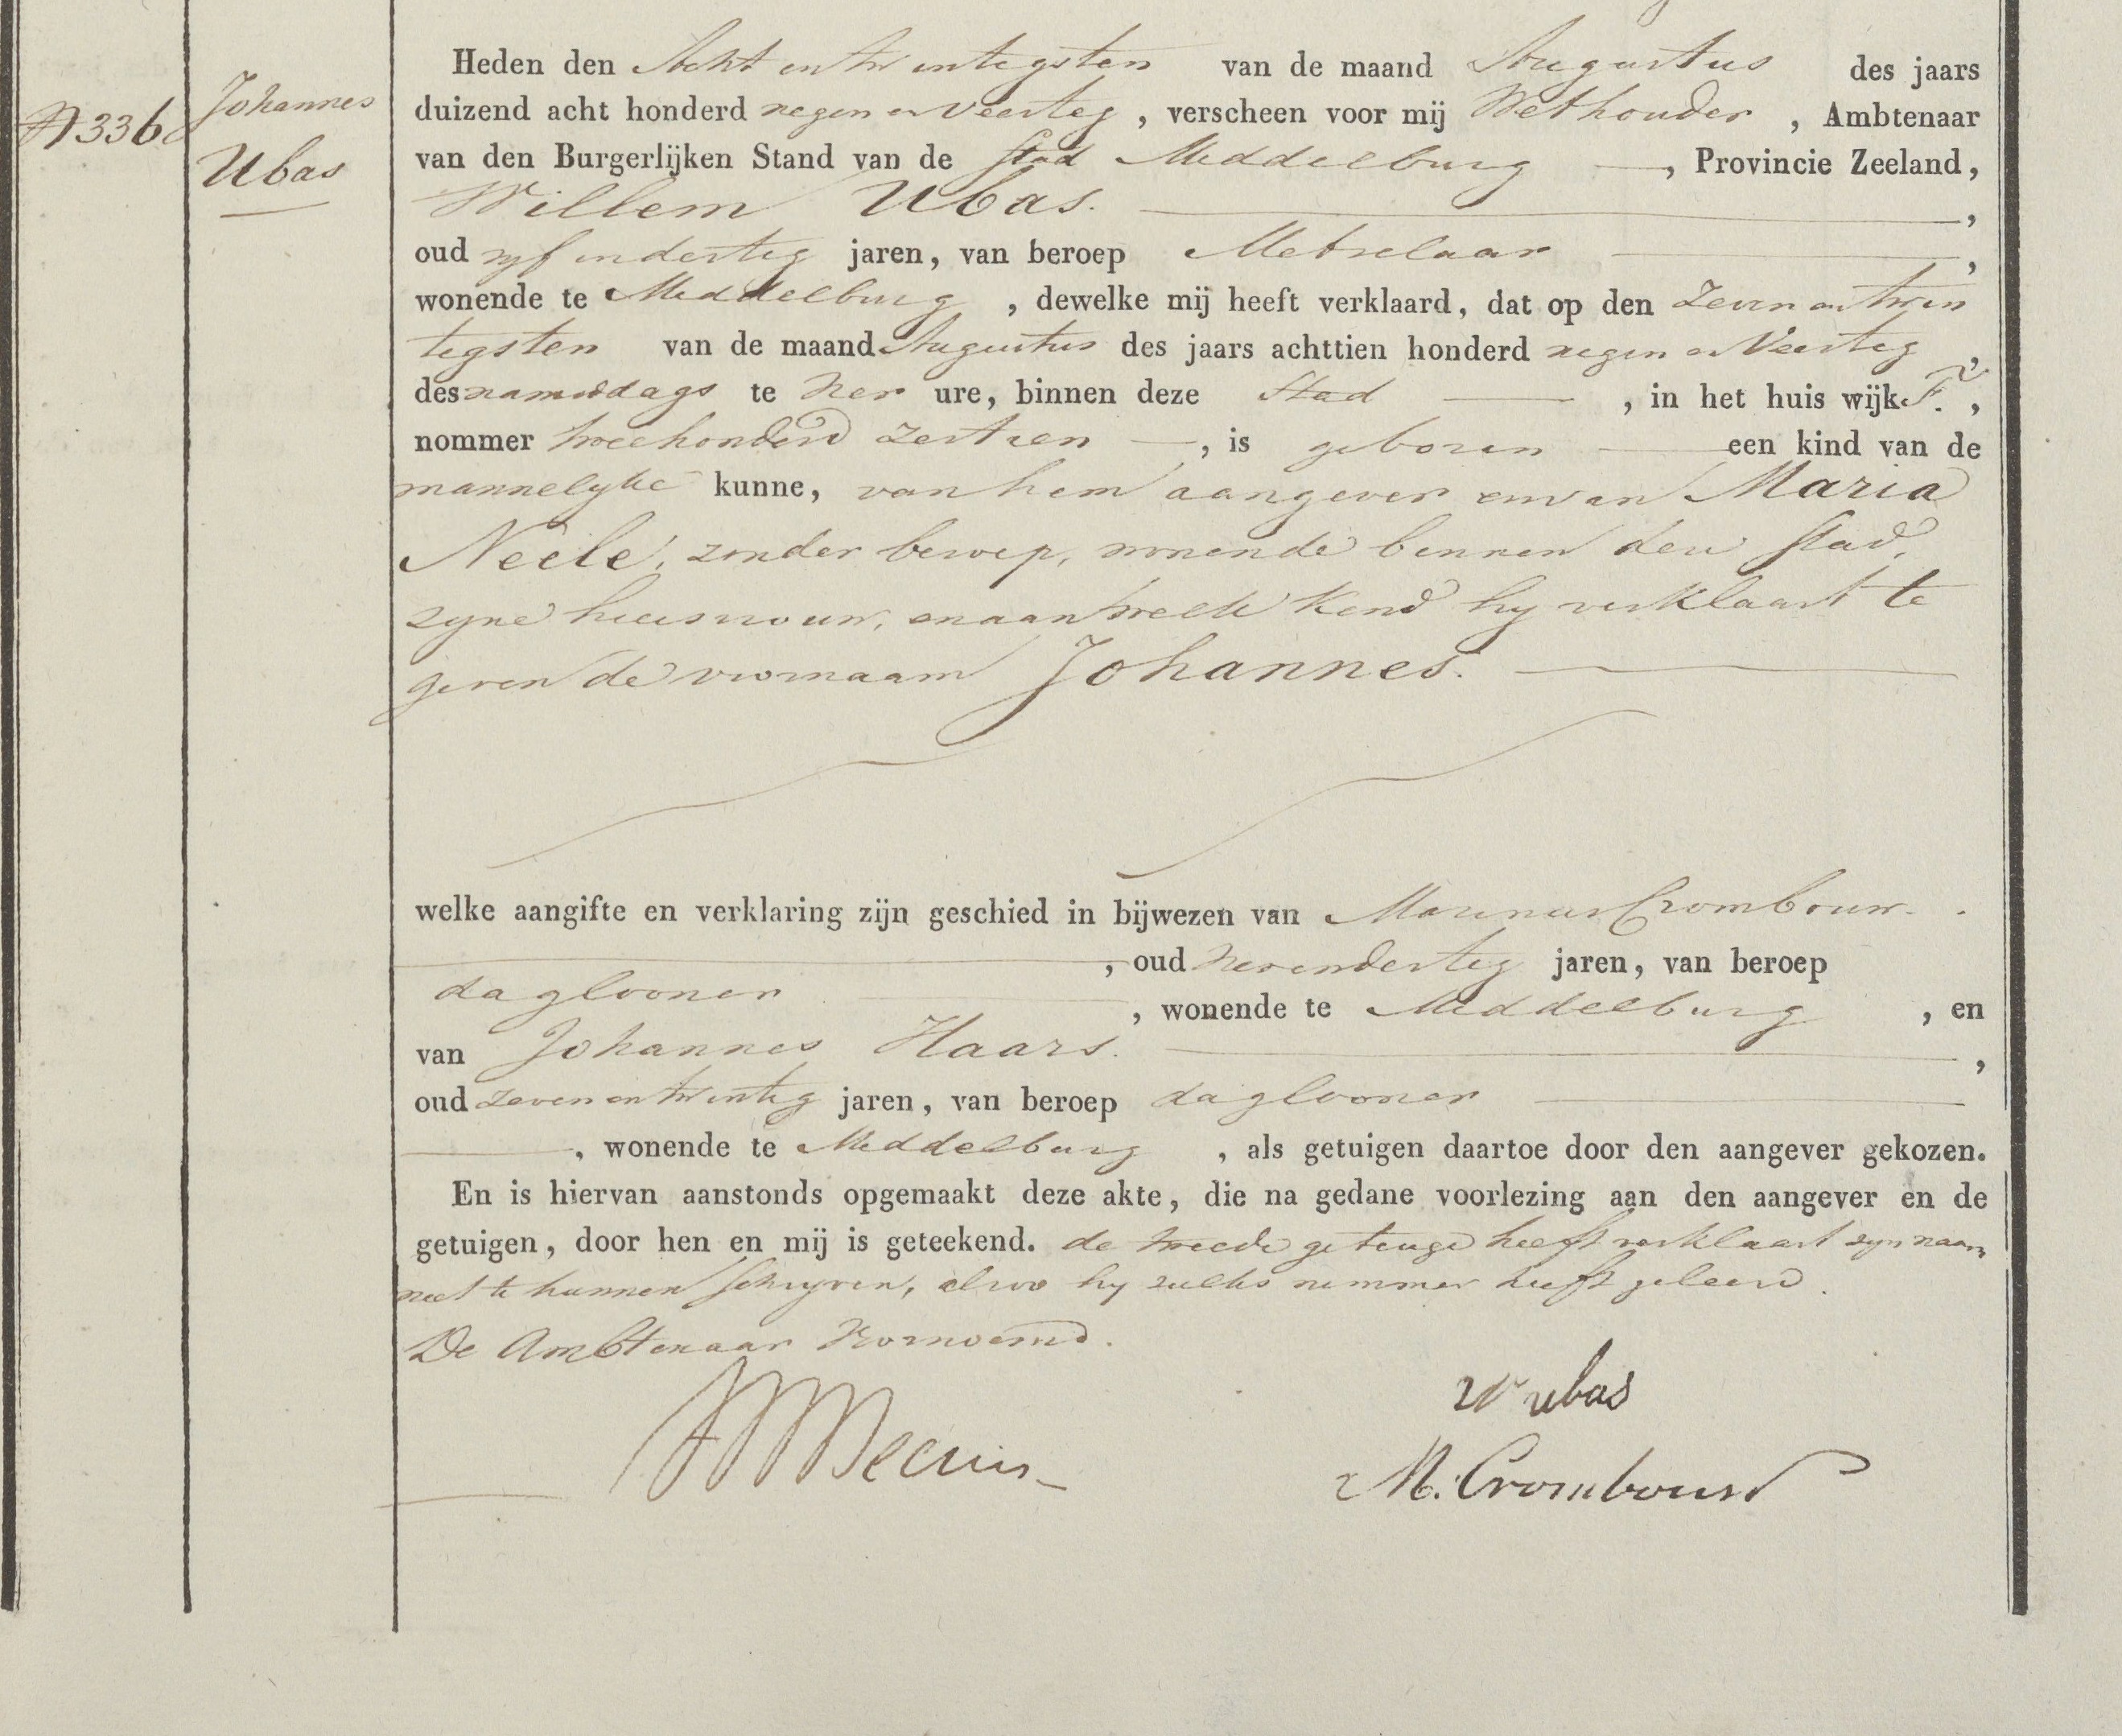 N 336
Johannes
Ubas
Heden den Acht en twintigsten van de maand Augustus des jaars
duizend acht honderd negen en Veertig, verscheen voor mij Wethouder, Ambtenaar
van den Burgerlijken Stand van de Stad Middelburg, Provincie Zeeland,
Willem Ubas.,
oud vijf en dertig jaren, van beroep Metselaar,
wonende te Middelburg, dewelke mij heeft verklaard, dat op den Zeven en twin
tigsten van de maand Augustus des jaars achttien honderd negen en Veertig,
des namiddags te vier ure, binnen deze Stad, in het huis wijk F.,
nommer tweehonderd zestien, is geboren een kind van de
mannelyke kunne, van hem aangever en van Maria
Neele, zonder beroep, wonende binnen deze stad,
zyne huisvrouw, en aan welk kind hy verklaart te
geven de voornaam Johannes.
welke aangifte en verklaring zijn geschied in bijwezen van Marinus Crombouw.
, oud vier en dertig jaren, van beroep
daglooner, wonende te Middelburg, en
van Johannes Haars.,
oud zeven en twintig jaren, van beroep daglooner
, wonende te Middelburg, als getuigen daartoe door den aangever gekozen.
En is hiervan aanstonds opgemaakt deze akte, die na gedane voorlezing aan den aangever en de
getuigen, door hen en mij is geteekend. de tweede getuige heeft verklaart zyn naam
niet te kunnen schryven, alzoo hy zulks nimmer heeft geleerd.
De Ambtenaar Voornoemd.
W ubas
M. Crombouw